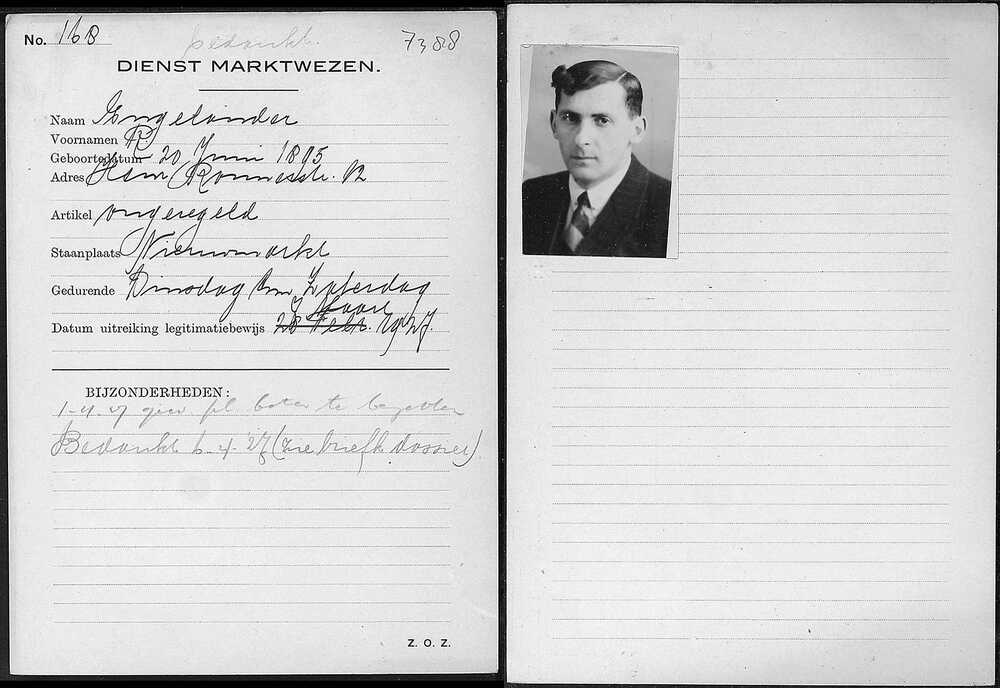 No. 168 bedankt. 7388
DIENST MARKTWEZEN.
Naam Engelander
Voornamen R
Geboortedatum 20 Juni 1895
Adres Ronnesstr. 12
Artikel ongeregeld
Staanplaats Nieuwmarkt
Gedurende Dinsdag Zaterdag
Maart
Datum uitreiking legitimatiebewijs 28 Febr. 1927.
BIJZONDERHEDEN:
1-4-27 geen pl. te
Bedankt 6-4-27 (zie briefk dossier)
Z. O. Z.